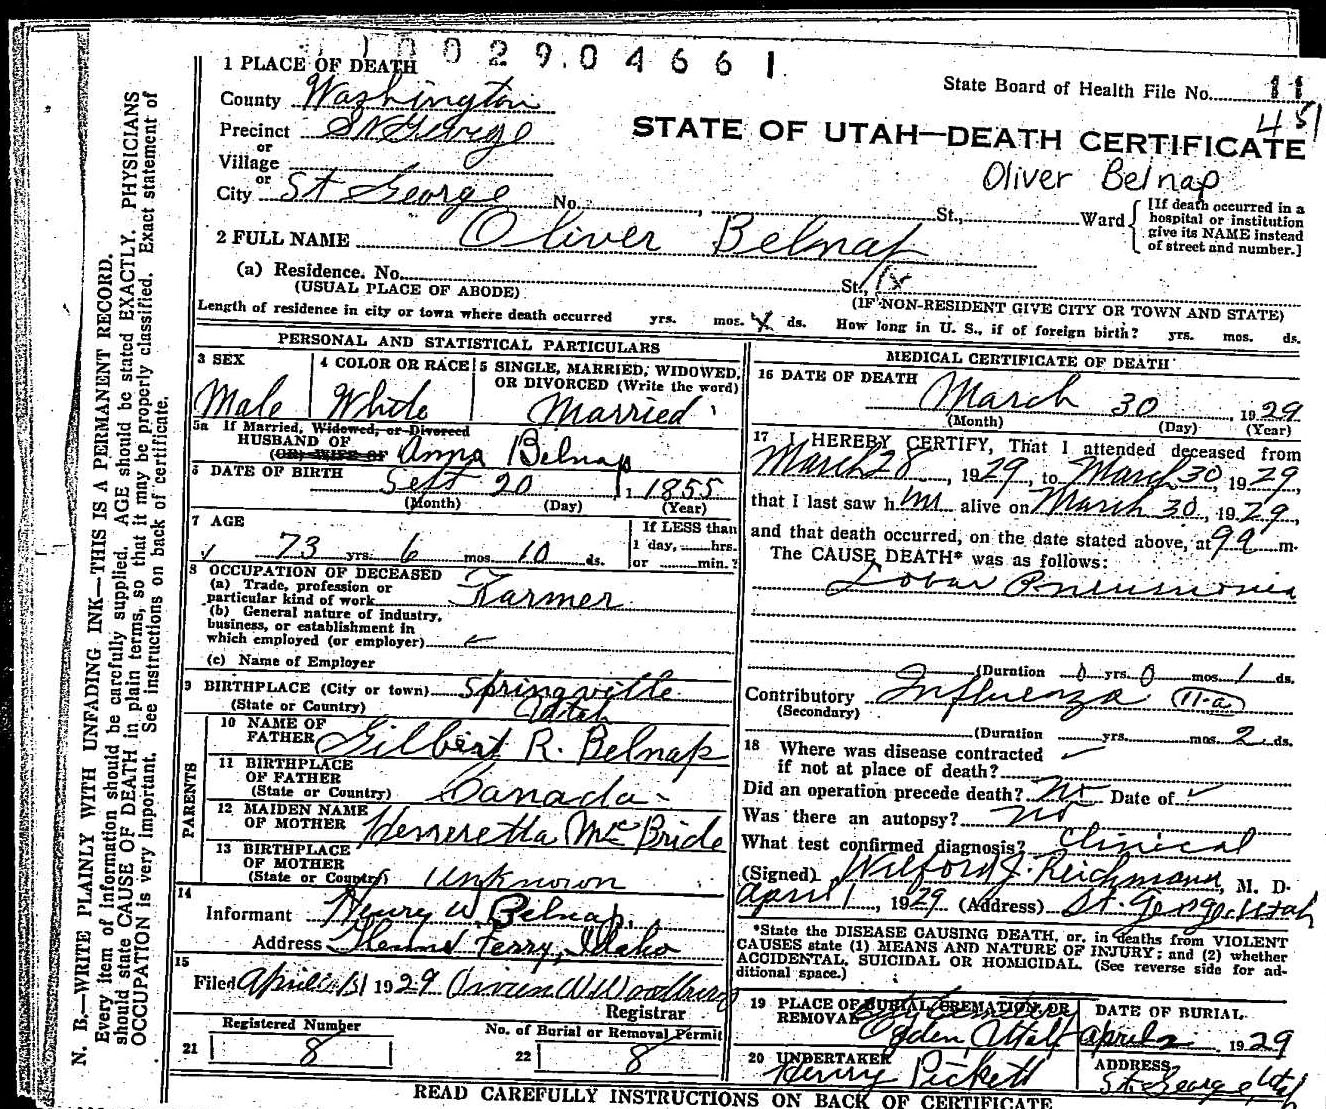 0 0 2 9 0 4 6 6 1
1 PLACE OF DEATH
State Board of Health File No. 11
County Washington
45
Precinct St George
STATE OF UTAH—DEATH CERTIFICATE
or
Village
Oliver Belnap
or
City St George No. St., Ward
[If death occurred in a
hospital or institution
give its NAME instead
of street and number.]
2 FULL NAME Oliver Belnap
(a) Residence. No. St.,
(USUAL PLACE OF ABODE)
(IF NON-RESIDENT GIVE CITY OR TOWN AND STATE)
Length of residence in city or town where death occurred yrs. mos. 4 ds. How long in U. S., if of foreign birth? yrs. mos. ds.
PERSONAL AND STATISTICAL PARTICULARS
3 SEX
Male
4 COLOR OR RACE
White
5 SINGLE, MARRIED, WIDOWED,
OR DIVORCED (Write the word)
Married
5a If Married, Widowed, or Divorced
HUSBAND OF
(OR) WIFE OF Anna Belnap
6 DATE OF BIRTH Sept 20 1855
(Month) (Day) (Year)
7 AGE
73 yrs. 6 mos. 10 ds.
If LESS than
1 day, hrs.
or min.?
8 OCCUPATION OF DECEASED
(a) Trade, profession or
particular kind of work Farmer
(b) General nature of industry,
business, or establishment in
which employed (or employer)
(c) Name of Employer
9 BIRTHPLACE (City or town) Springville
(State or Country) Utah
PARENTS
10 NAME OF
FATHER Gilbert R. Belnap
11 BIRTHPLACE
OF FATHER
(State or Country) Canada
12 MAIDEN NAME
OF MOTHER Henreretta McBride
13 BIRTHPLACE
OF MOTHER
(State or Country) Unknown
14
Informant Henry W Belnap
Address Ferry, Idaho
15
Filed April 1929
Registrar
Registered Number
21 8
No. of Burial or Removal Permit
22 8
MEDICAL CERTIFICATE OF DEATH
16 DATE OF DEATH
March 30 1929
(Month) (Day) (Year)
17 I HEREBY CERTIFY, That I attended deceased from
March 28, 1929, to March 30 1929,
that I last saw him alive on March 30, 1929,
and that death occurred, on the date stated above, at 9 m.
The CAUSE DEATH* was as follows:
Lobar Pneumonia
(Duration 0 yrs. 0 mos. 1 ds.
Contributory Influenza 11-a
(Secondary)
(Duration yrs. mos. 2 ds.
18 Where was disease contracted
if not at place of death?
Did an operation precede death? No Date of
Was there an autopsy? No
What test confirmed diagnosis? Clinical
(Signed) Wilford J. Reichmann, M. D.
April 1, 1929 (Address) St. George, Utah
*State the DISEASE CAUSING DEATH, or, in deaths from VIOLENT
CAUSES state (1) MEANS AND NATURE OF INJURY; and (2) whether
ACCIDENTAL, SUICIDAL OR HOMICIDAL. (See reverse side for ad-
ditional space.)
19 PLACE OF BURIAL, CREMATION, OR
REMOVAL
Ogden, Utah
DATE OF BURIAL
April 2 1929
20 UNDERTAKER
Henry Pickett
ADDRESS
St. George, Utah
READ CAREFULLY INSTRUCTIONS ON BACK OF CERTIFICATE
N. B.—WRITE PLAINLY WITH UNFADING INK—THIS IS A PERMANENT RECORD.
Every item of information should be carefully supplied. AGE should be stated EXACTLY. PHYSICIANS
should state CAUSE OF DEATH in plain terms, so that it may be properly classified. Exact statement of
OCCUPATION is very important. See instructions on back of certificate.